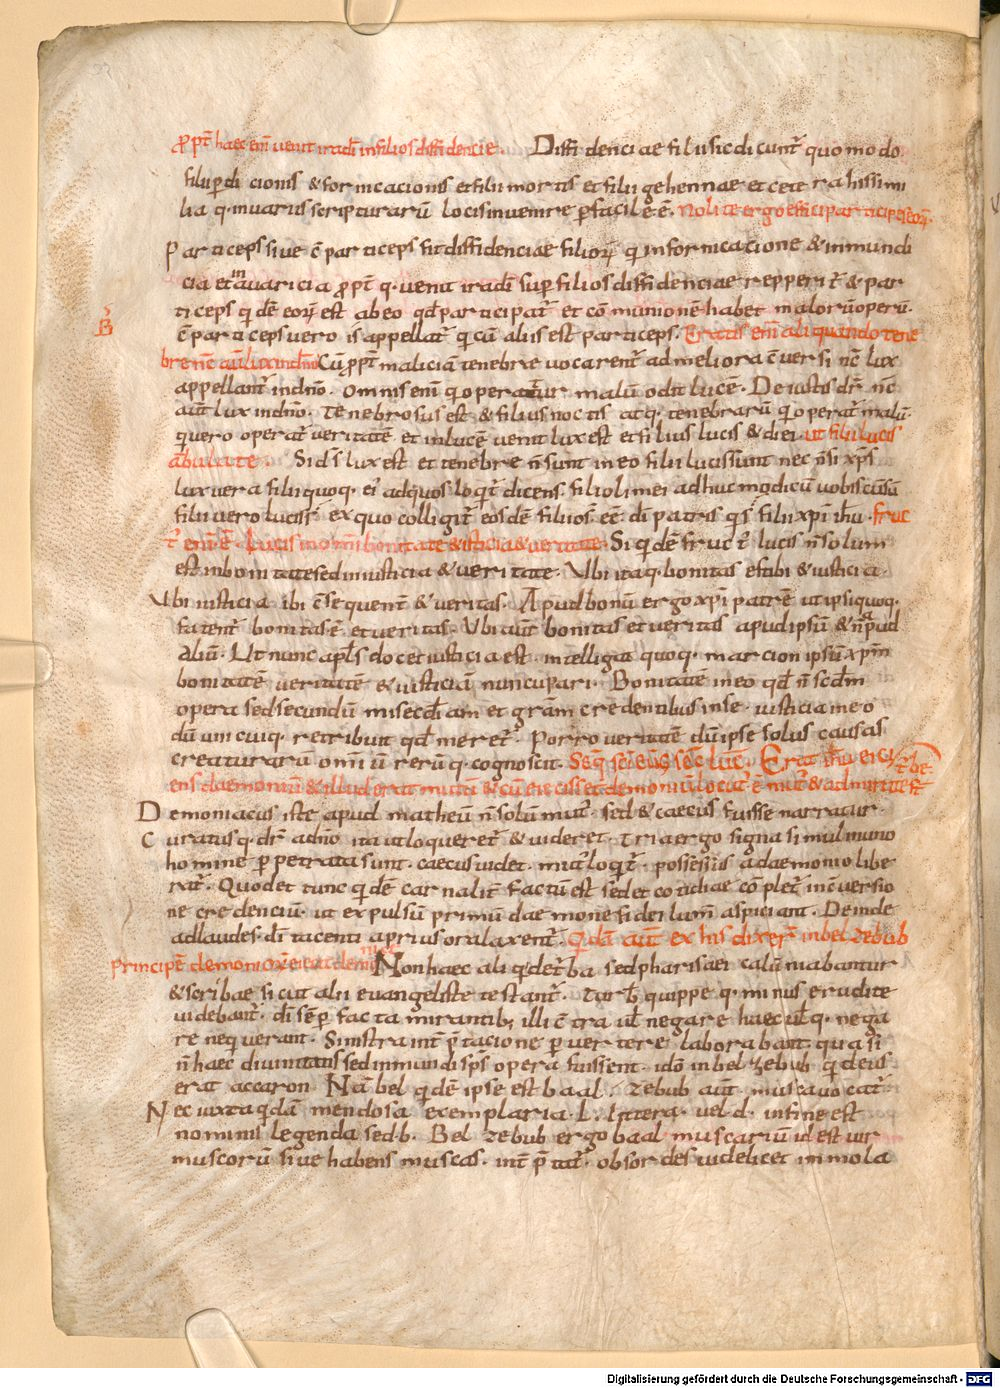 ꝓpt̄ haec em̄ venit ira dī in filios diffidencie. Diffidenciae filii sic dicunt᷑ quomodo
filii ꝑdicionis & fornicacionis et filii mortis et filii gehennae et cetera his simi
lia q· in variis scripturarū locis invenire ꝑfacile ē· Nolite ergo effici participes eoꝝ·
Particeps sive c̄particeps fit diffidenciae filioꝝ qui in fornicacione & inmundi
cia et in avaricia ꝓpt̄ q· venit ira dī sup̄ filios diffidenciae repperit᷑ & par
ticeps qdē eoꝝ est ab eo qd̄ participat᷑ et cōmunionē habet malorū operū·
c̄particeps vero is appellat᷑ qui cū aliis est particeps. Eratis em̄ aliquando tene
bre nc̄ aut̄ lux in dn̄o Cū ꝓpt̄ maliciā tenebre vocarent᷑ ad meliora c̄versi nc̄ lux
appellant᷑ in dn̄o· Omnis enī qui operatur malū odit lucē· De iustis dr̄ nc̄
aut̄ lux in dn̄o· Tenebrosus est & filius noctis atq· tenebrarū qui operat᷑ malū·
quero operat᷑ veritatē et in lucē venit lux est et filius lucis & diei· ut filii lucis
ābulate· Si d̄s lux est et tenebre n̄ sunt in eo filii lucis sunt nec n̄si xp̄s
lux vera filii quoq· ei᷒ ad quos loquit᷑ dicens· filioli mei adhuc modicū vobiscū sū
filii vero lucis s̄· ex quo colligit᷑ eosdē filios ēē dī patris qui s̄ filii xp̄i ih̄u· fruc
t᷒ enī ē lucis in om̄i bonitate & iusticia & veritate· Siqdē fruct᷒ lucis n̄ solum
est in bonitate sed in iusticia & veritate· Ubi itaq· bonitas est ibi & iusticia·
Ubi iusticia ibi c̄sequent᷑ & veritas· Apud bonū ergo xp̄i patrē ut ipsi quoq·
fatent᷑ bonitas ē et veritas· Ubi aut̄ bonitas et veritas apud ipsū & n̄ apud
aliū· Ut nunc apl̄s docet iusticia est· intelligat quoq· marcion ipsū xp̄m
bonitatē veritatē & iusticiā nuncupari· Bonitate in eo qd̄ n̄ scd̄m
opera sed secundū misec̄diam et grām credentibus in se· iusticia in eo
dū unicuiq· retribuit qd̄ meret᷑· Porro veritatē dū ipse solus causas
creaturarū omniū rerūq· cognoscit· Seq̄ sc̄i euḡ sec̄ lucā· Erat ih̄s eici
ens daemoniū & illud erat mutū & cū eiecisset demoniū locut᷒ ē mut᷒ & admirate s̄ t᷒be·
Demoniacus iste apud matheū n̄ solū mut᷒ sed & caecus fuisse narratur·
Curatusq· dr̄ a dn̄o ita ut loqueret᷑ & videret· Tria ergo signa simul in uno
homine ꝑpetrata sunt· caecus videt· mut᷒ loquit᷑· possessus a daemonio libe
rat᷑· Quod et tunc qdē carnalit᷑ factū est sed et cotidiae cōplet᷑ in c̄versio
ne credenciū· ut expulsū primū daemone fidei lum̄ aspiciant· Deinde
ad laudes dī tacenti aprius ora laxent᷑· Qdā aut̄ ex his dixer̄· in belzebub
principē demonioꝝ eicit demonia Non haec aliqd̄ et᷑ba sed pharisaei calūniabantur
& scribae sicut alii evangeliste testant᷑· Turb̄ quippe q· minus erudite
videbant᷑ dī sēꝑ facta mirantib; illi c̄tra ul̄ negare haec ul̄ q· nega
re nequierant· Sinistra int̄p̄tacione ꝑvertere laborabant quasi
n̄ haec divinitatis sed inmundi sp̄s opera fuissent· idō in belzebub qui deus
erat accaron· Nā bel qdē ipse est baal· Zebub aut̄ musca vocat᷑·
Nec iuxta qdā mendosa exemplaria· L· littera· vel d· in fine est
nominis legenda sed b· Belzebub ergo baal muscariū id est vir
muscorū sive habens muscas· int̄p̄tat᷑· ob sordes videlicet immola
Digitalisierung gefördert durch die Deutsche Forschungsgemeinschaft - DFG